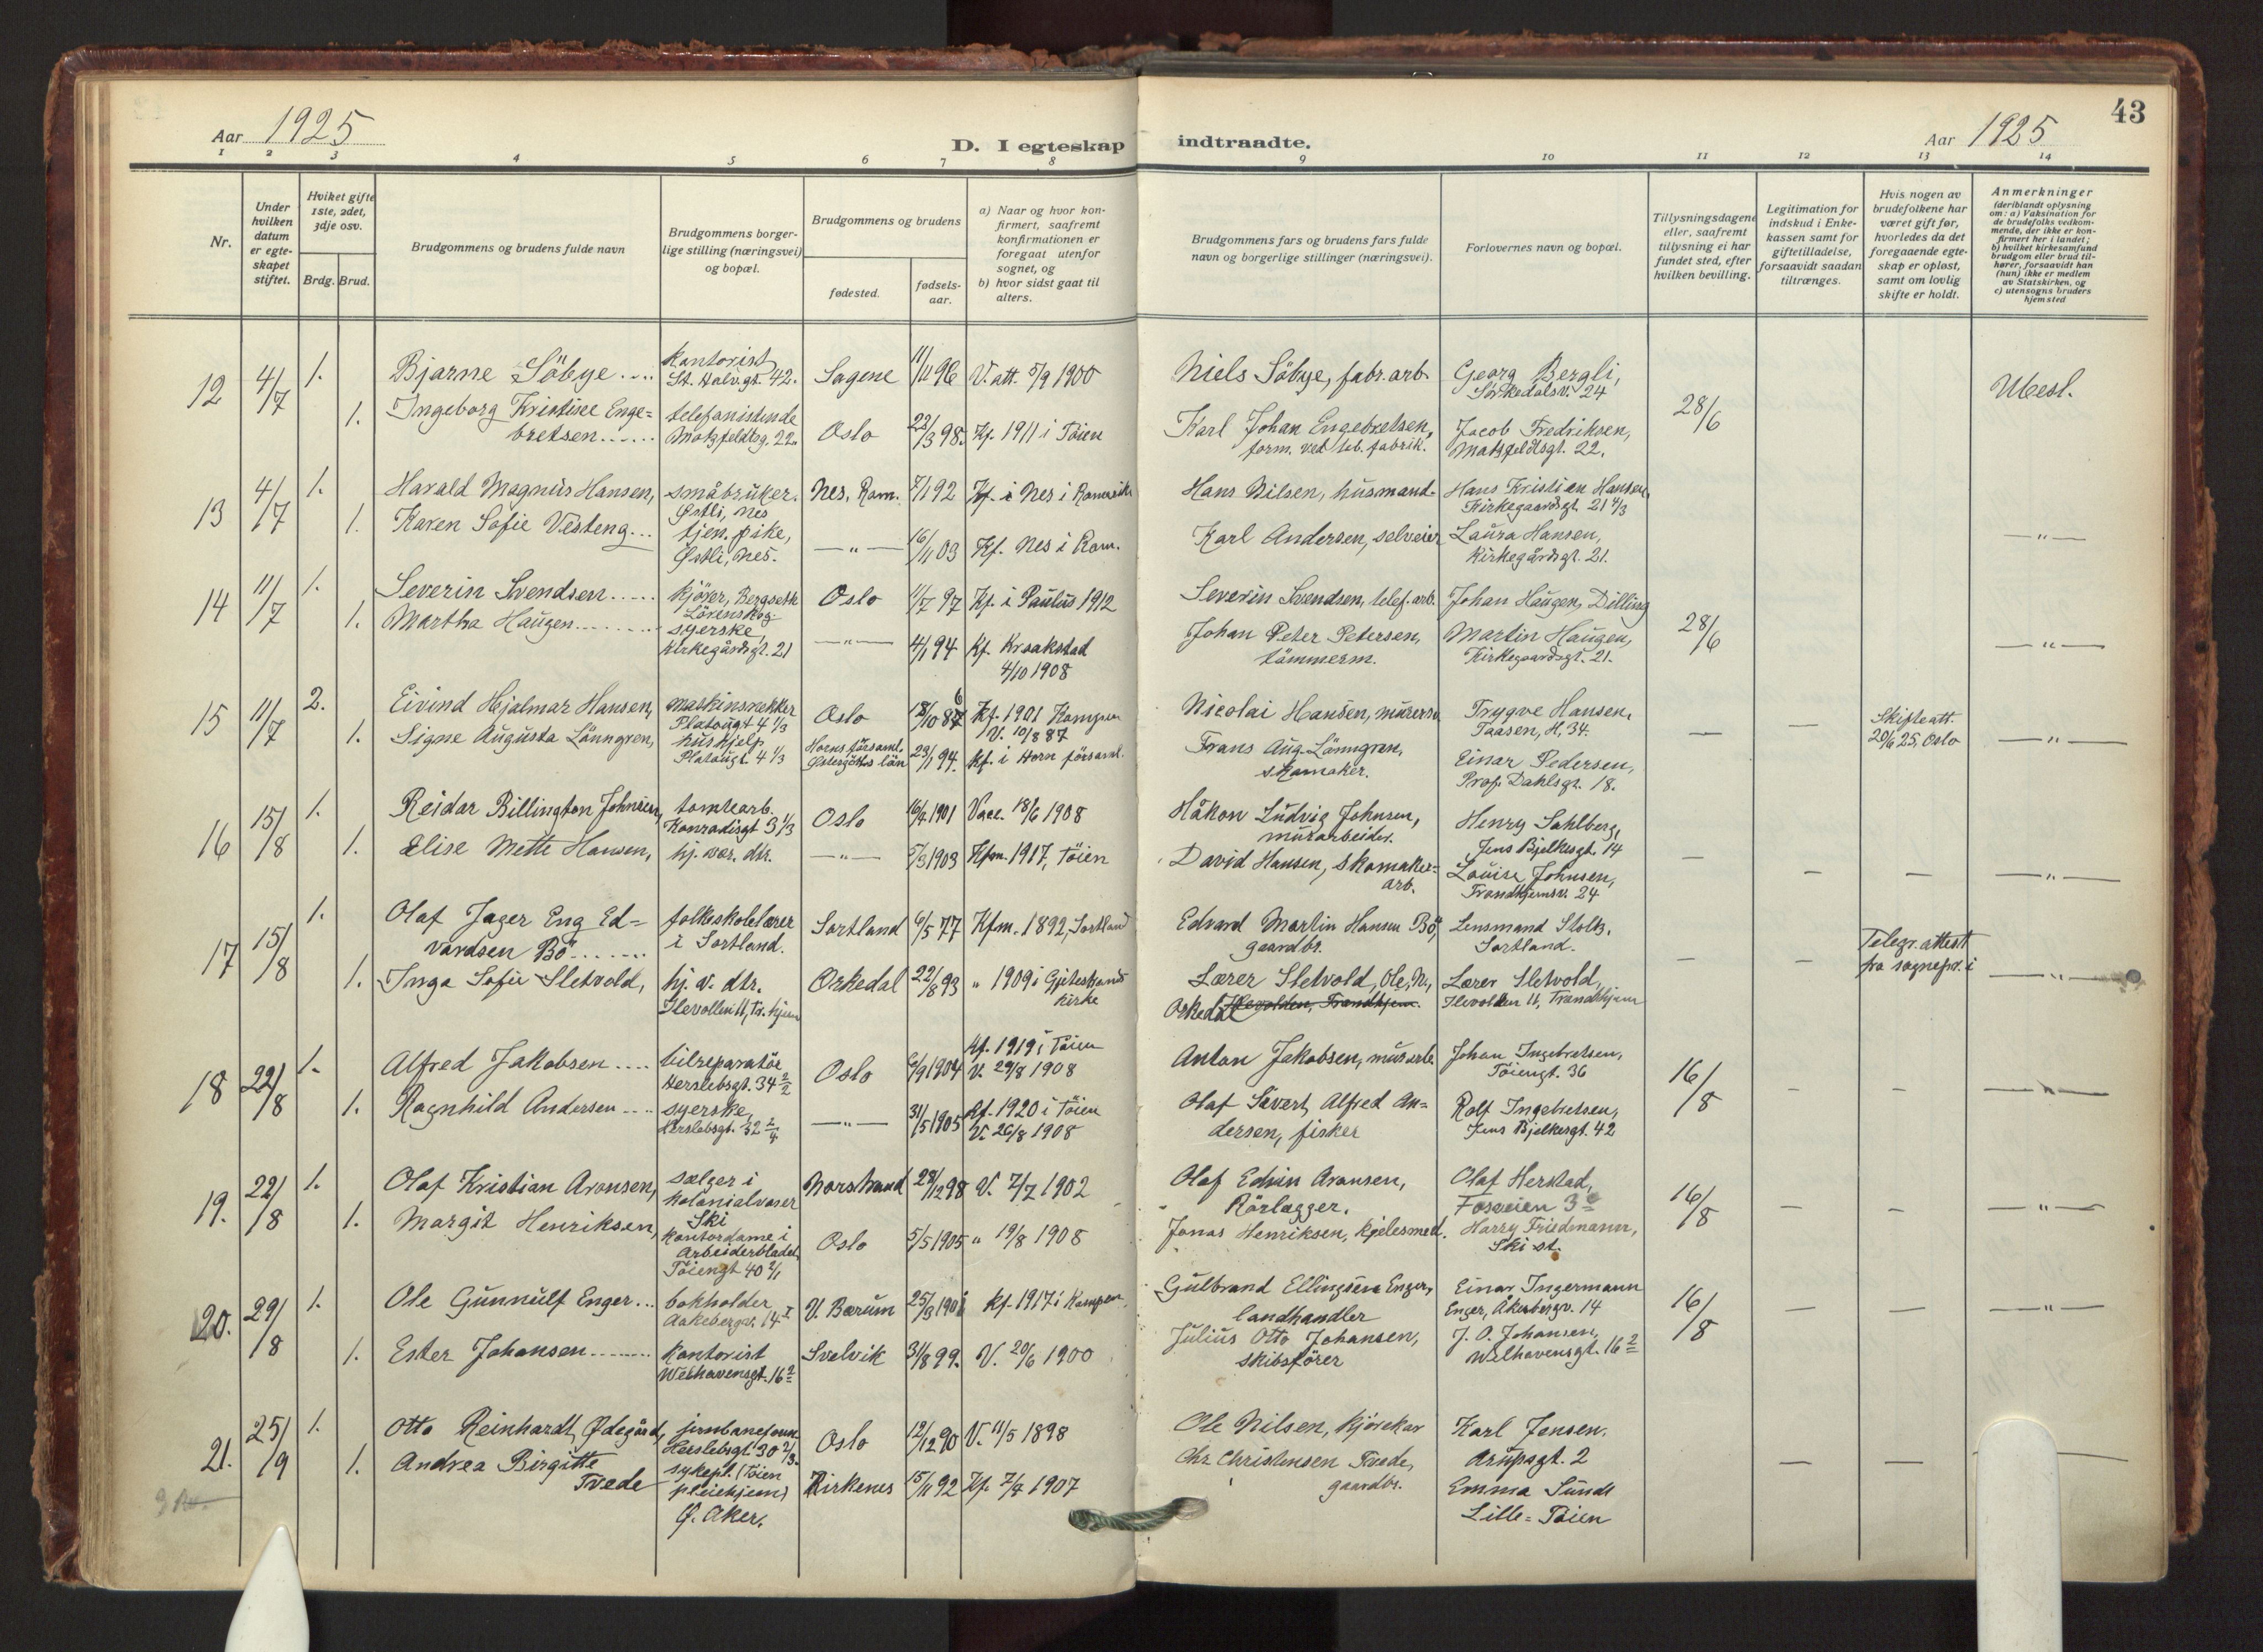 43
Aar 1925
D. I egteskap indtraadte.
Aar 1925
1 2 3 4 5 6 7 8 9 10 11 12 13 14
Nr.
Under hvilken datum er egteskapet stiftet.
Hviket gifte 1ste, 2det, 3dje osv.
Brdg. Brud.
Brudgommens og brudens fulde navn
Brudgommens borgerlige stilling (næringsvei) og bopæl.
Brudgommens og brudens
fødested.
fødselsaar.
a) Naar og hvor konfirmert, saafremt konfirmationen er foregaat utenfor sognet, og
b) hvor sidst gaat til alters.
Brudgommens fars og brudens fars fulde navn og borgerlige stillinger (næringsvei).
Forlovernes navn og bopæl.
Tillysningsdagene eller, saafremt tillysning ei har fundet sted, efter hvilken bevilling.
Legitimation for indskud i Enkekassen samt for giftetilladelse, forsaavidt saadan tiltrænges.
Hvis nogen av brudefolkene har været gift før, hvorledes da det foregaaende egteskap er opløst, samt om lovlig skifte er holdt.
Anmerkninger (deriblandt oplysning om: a) Vaksination for de brudefolks vedkommende, der ikke er konfirmert her i landet; b) hvilket kirkesamfund brudgom eller brud tilhører, forsaavidt han (hun) ikke er medlem av Statskirken, og c) utensogns bruders hjemsted
12 4/7 1. Bjarne Söbye .... kontorist St. Halv.gt. 42. Sagene 11/11 96 V. att. 5/9 1900 Niels Söbye, fabr. arb. Georg Bergli, Sörkedalsv. 24
1. Ingeborg Kristine Engebretsen...... telefonistinde Motzfeldtsg. 22. Oslo 22/3 98. Kf. 1911 i Töien Karl Johan Engebretsen, form. ved tob. fabrik. Jacob Fredriksen, Motzfeldtsgt. 22. 28/6
13 4/7 1. Harald Magnus Hansen, småbruker. Østli, Nes Nes, Rom. 7/1 92 Kf. i Nes i Romerik Hans Nilsen, husmand. Hans Kristian Hansen, Kirkegaardsgt. 21 4/3
1. Karen Sofie Vesteng... tjen. pike, Østli, Nes. —"— 16/11 03 Kf. Nes i Rom. Karl Andersen, selveier Laura Hansen, Kirkegårdsgt. 21. —"—
14 11/7 1. Severin Svendsen..... kjörer, Lörenskog Oslo 11/7 97 Kf. i Paulus 1912 Severin Svendsen, telef. arb. Johan Haugen, Dilling
1. Martha Haugen........ syerske, Kirkegårdsgt. 21 —"— 4/1 94 Kf. Kraakstad 4/10 1908 Johan Peter Petersen, tömmerm. Martin Haugen, Kirkegaardsgt. 21. 28/6 —"—
15 11/7 2. Eivind Hjalmar Hansen, Platougt 4 1/3 Oslo 18/10 86 Kf. 1901 Kampen V. 10/8 87 Nicolai Hansen, Trygve Hansen, Taasen, H. 34. — — Skifteatt. 20/6 25, Oslo
1. Signe Augusta Lönngren, hushjelp, Platougt. 4 1/3 Horns församl. Östergötlds län 23/1 94. Kf. i Horn församl. Frans Aug. Lönngren, skomaker. Einar Pedersen, Prof. Dahlsgt. 18. —"—
16 15/8 1. Reidar Billington Johnsen, tomtearb. Konradisgt 3 1/3 Oslo 16/4 1901 Vacc. 18/6 1908 Håkon Ludvig Johnsen, murarbeider. Henry Sahlberg, Jens Bjelkesgt. 14
1. Elise Mette Hansen, hj. vær. dtr. —"— 5/3 1903 Kfm. 1917, Töien David Hansen, skomakerarb. Louise Johnsen, Trondhjemsv. 24 — — — —"—
17 15/8 1. Olaf Jager Eng Edvardsen Bö...... folkeskolelærer i Sortland. Sortland 6/5 77 Kfm. 1892, Sortland Edvard Martin Hansen Bö, gaardbr. Lensmand Stoltz, Sortland. Telegr. attest fra sognepr. i
1. Inga Sofie Sletvold, hj. v. dtr. Ilevollen 11, Tr. hjem Orkedal 22/8 93 " 1909 i kirke Lærer Sletvold, Ole, N., Orkedal Ilevolden, Trondhjem. Lærer Sletvold, Ilevolden 11, Trondhjem — — —"—
18 22/8 1. Alfred Jakobsen .... bilreparatör Herslebsgt. 34 2/2 Oslo 6/9 1904 Kf. 1919 i Töien V. 29/8 1908 Anton Jakobsen, murarb. Johan Ingebretsen, Töiengt. 36
1. Ragnhild Andersen .... syerske, Herslebsgt. 32 2/4 —"— 31/5 1905 Kf. 1920 i Töien V. 26/8 1908 Olaf Sivert Alfred Andersen, fisker Rolf Ingebretsen, Jens Bjelkesgt. 42 16/8 — — —"—
19. 22/8 1. Olaf Kristian Aronsen, sælger i kolonialvarer Ski Norstrand 28/12 98 V. 7/7 1902 Olaf Edvin Aronsen, Rörlægger. Olaf Herstad, Fosveien 3
1. Margit Henriksen, kontordame i Arbeiderbladet, Töiengt 40 2/1 Oslo 5/5 1905 " 19/8 1908 Jonas Henriksen, kjelesmed. Harry Friedmann, Ski st. 16/8 — — —"—
20. 29/8 1. Ole Gunnulf Enger... bokholder Aakebergv. 14 I V. Bærum 25/3 1901 kf. 1917 i Kampen. Gulbrand Ellingsen Enger, landhandler Einar Ingermann Enger, Åkebergv. 14
1. Ester Johansen........ kontorist Welhavensgt. 16 2 Svelvik 31/8 99. V. 20/6 1900 Julius Otto Johansen, skibsförer J. O. Johansen, Welhavensgt. 16 2 16/8 — — —"—
21. 25/9 1. Otto Reinhardt Ødegård, Herslebsgt 30 2/3. Oslo 12/12 90 V. 11/5 1898 Ole Nilsen, kjörekar Karl Jensen. Arupsgt. 2
1. Andrea Birgitte Tvede sykepl. (Töien pleiehjem) Ø. Aker. Kirkenes 15/11 92 Kf. 7/4 1907 Chr. Christensen Tvede, gaardbr. Emma Sundt Lille-Töien — — —